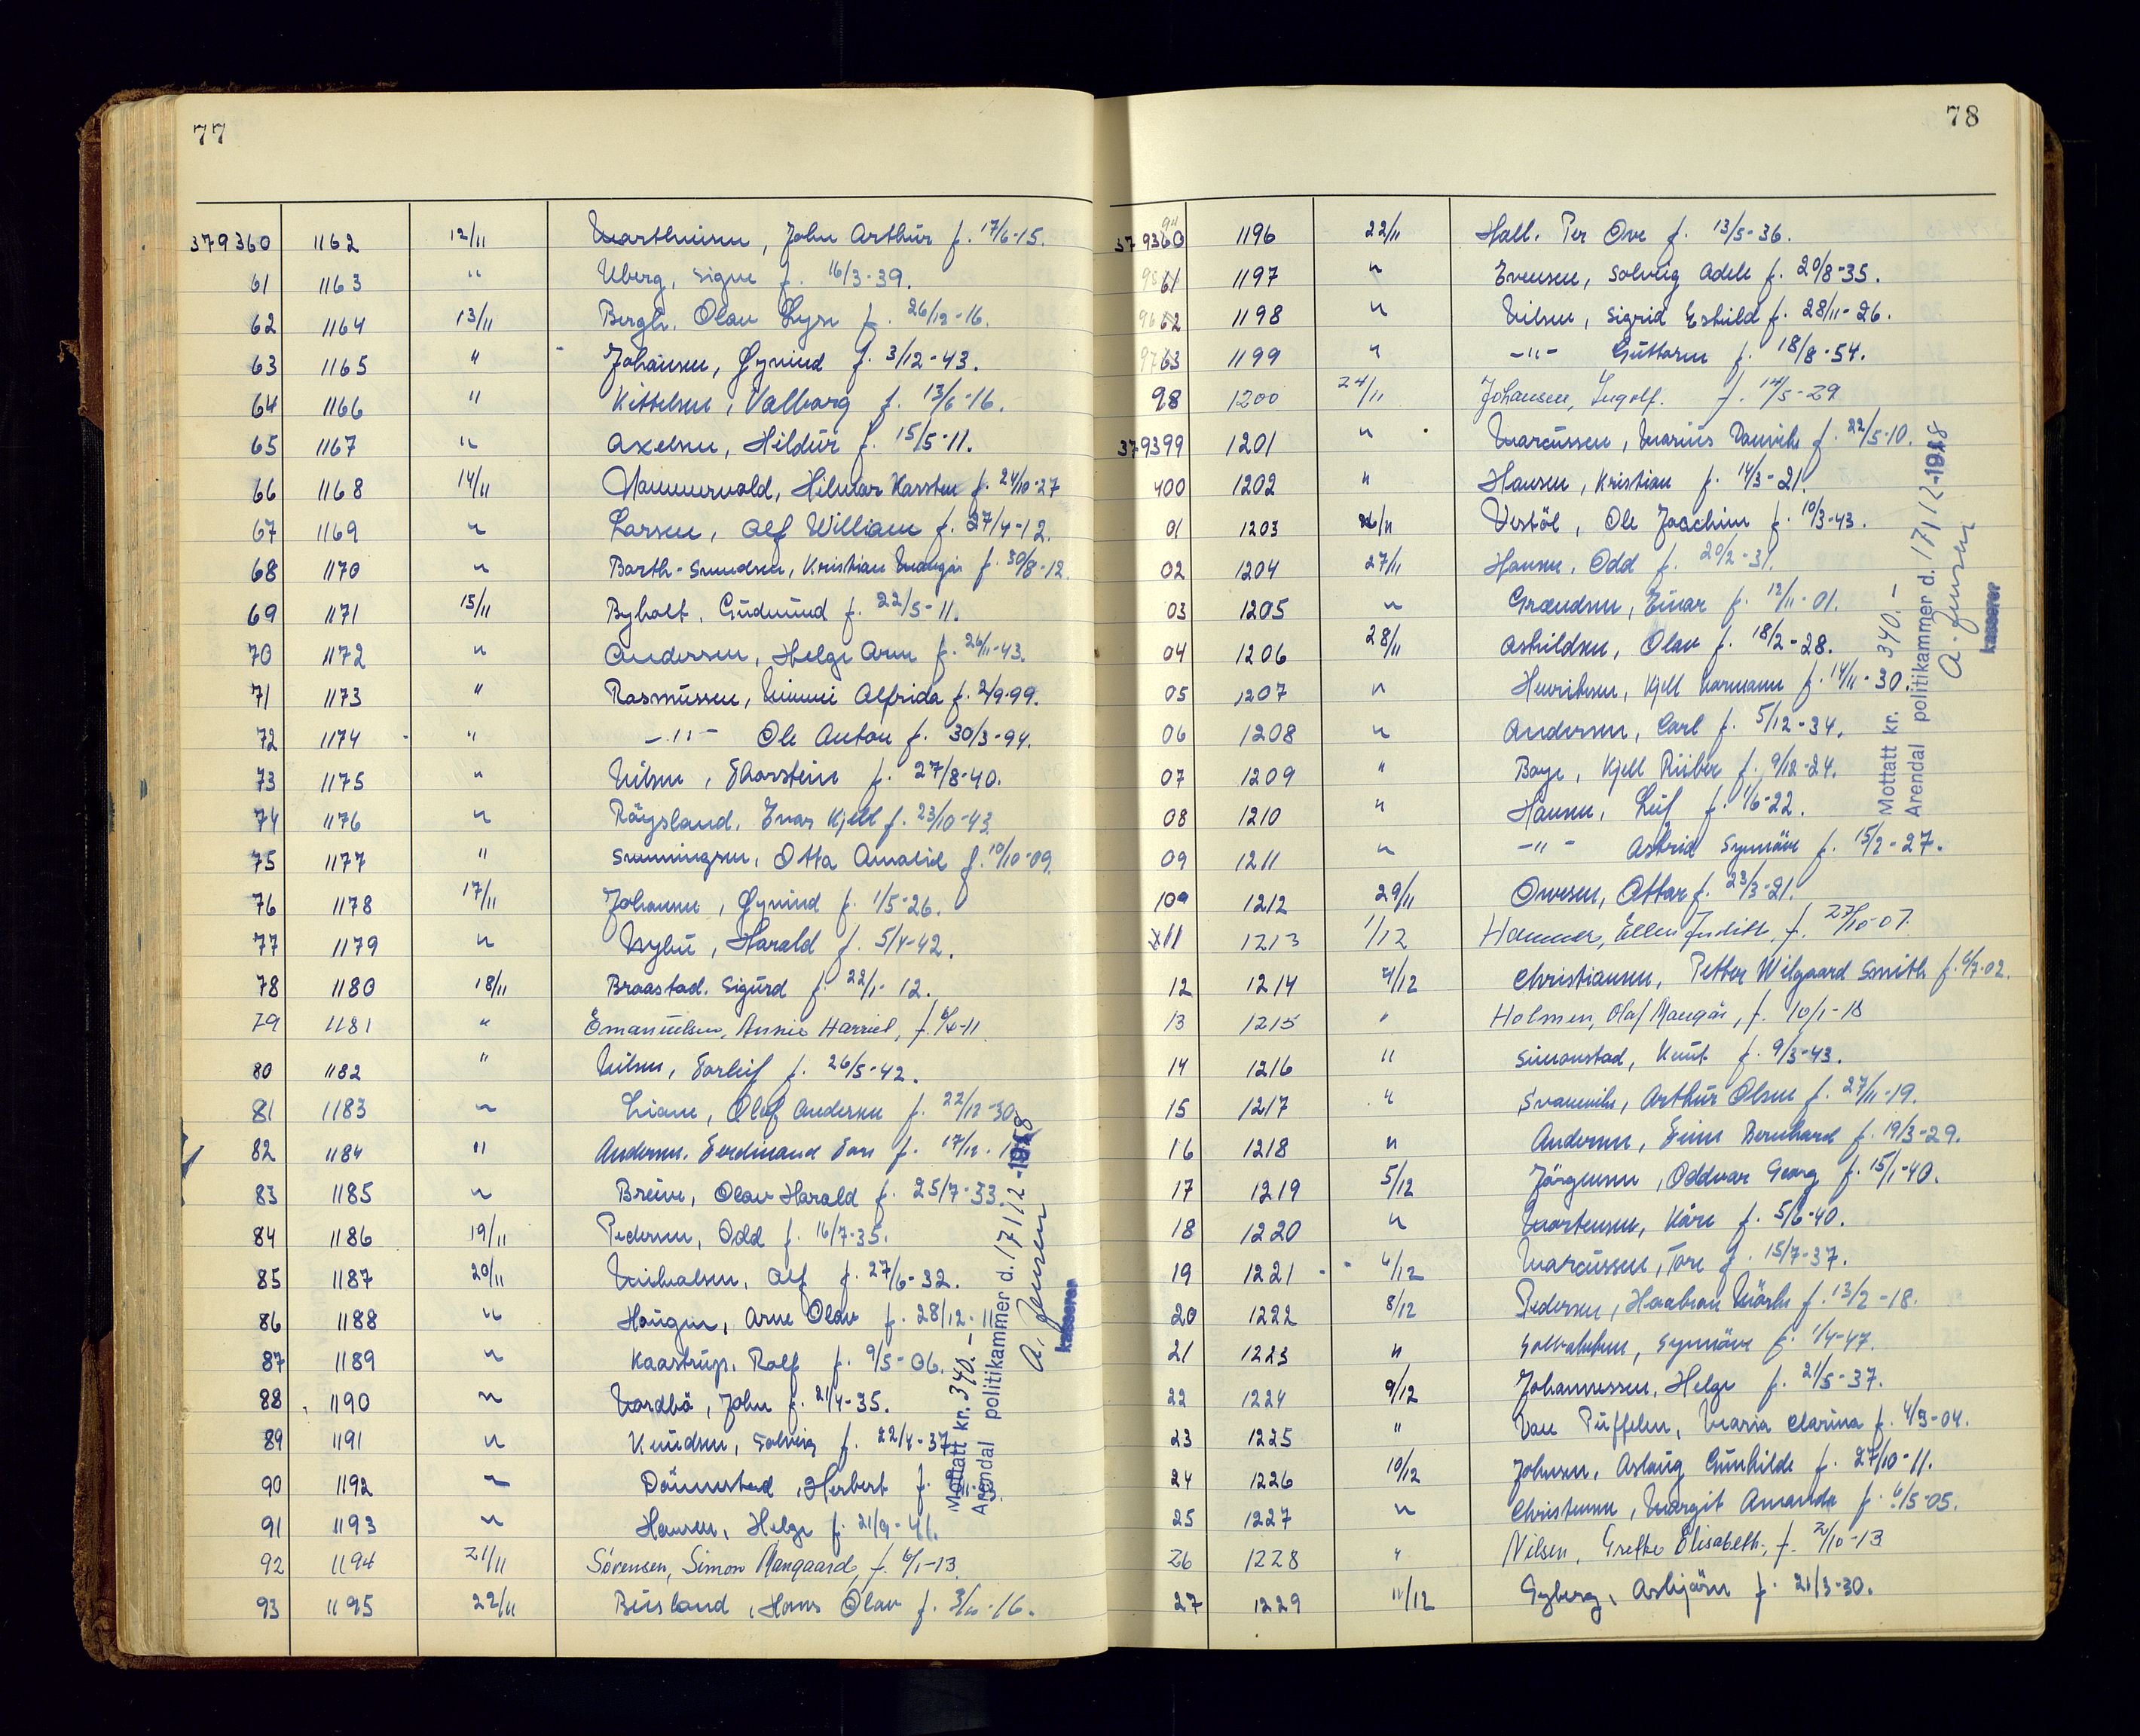 77
379360 1162 12/11 Marthinsen, John Arthur f. 17/6-15.
61 1163 " Uberg, Signe f. 16/3-39.
62 1164 13/11 Bergh, Olav Lyse f. 26/12-16.
63 1165 " Johansen, Øyvind f. 3/12-43.
64 1166 " Kittelsen, Valborg f. 13/6-16.
65 1167 " Axelsen, Hildur f. 15/5-11.
66 1168 14/11 Hammervold, Hilmar Karsten f. 24/10-27
67 1169 " Larsen, Alf William f. 27/4-12.
68 1170 " Barth-Svendsen, Kristian Margår f. 30/8-12.
69 1171 15/11 Byholt, Gudmund f. 22/5-11.
70 1172 " Andersen, Helge Arne f. 26/11-43.
71 1173 " Rasmussen, Minni Alfrida f. 2/9-99.
72 1174 " -"- Ole Anton f. 30/3-94.
73 1175 " Nilsen, Thorstein f. 27/8-40.
74 1176 " Röysland, Evar Kjell f. 23/10-43.
75 1177 " Svenningsen, Otta Amalie f. 10/10-09.
76 1178 17/11 Johansen, Øyvind f. 1/5-26.
77 1179 " Nybu, Harald f. 5/4-42.
78 1180 18/11 Braastad, Sigurd f. 22/1-12.
79 1181 " Emanuelsen, Annie Harriet, f. 6/4-11.
80 1182 " Nilsen, Torleif f. 26/5-42.
81 1183 " Liane, Olaf Andersen f. 22/12-30.
82 1184 " Andersen, Ferdinand Tors f. 17/12-1
83 1185 " Breive, Olav Harald f. 25/7-33.
84 1186 19/11 Pedersen, Odd f. 16/7-35.
85 1187 20/11 Mikalsen, Alf f. 27/6-32.
86 1188 " Haugen, Arne Olav f. 28/12-11
87 1189 " Kaastrup, Rolf f. 9/5-06.
88 1190 " Nordbö, John f. 21/4-35.
89 1191 " Knudsen, Solveig f. 22/4-37
90 1192 " Dönnestad, Herbert f.
91 1193 " Hansen, Helge f. 21/9-41.
92 1194 21/11 Sörensen, Simon Mangaard, f. 6/1-13.
93 1195 22/11 Beisland, Hans Olav f. 3/6-16.
Mottatt kr. 340.-
Arendal politikammer d. 17/12-1958
A. Jensen
kasserer
78
379360 94 1196 22/11 Hall, Per Ove f. 13/5-36.
9561 1197 " Evensen, Solveig Adele f. 20/8-35.
9662 1198 " Nilsen, Sigrid Eskild f. 28/11-26.
9763 1199 " -"- Guttorm f. 18/8-54.
98 1200 24/11 Johansen, Ingolf. f. 14/5-29
379399 1201 " Marcussen, Marius Danvik f. 22/5-10.
400 1202 " Hansen, Kristian f. 14/3-21.
01 1203 26/11 Vestöl, Ole Joachim f. 10/3-43.
02 1204 27/11 Hansen, Odd f. 20/2-31.
03 1205 " Grændsen, Einar f. 12/11-01.
04 1206 28/11 Askildsen, Olav f. 18/2-28.
05 1207 " Henriksen, Kjell Normann f. 14/11-30.
06 1208 " Andersen, Carl f. 5/12-34.
07 1209 " Boye, Kjell Riiber f. 9/12-24.
08 1210 " Hansen, Leif f. 1/6-22.
09 1211 " -"- Astrid Synnöve f. 15/2-27.
109 1212 29/11 Ovesen, Ottar f. 23/3-21.
11 1213 1/12 Hammer, Ellen Judith, f. 27/10-07.
12 1214 4/12 Christiansen, Petter Wilgaard Smith f. 6/7-02.
13 1215 " Holmen, Olaf Mangår, f. 10/1-18
14 1216 " Simonstad, Knut f. 9/3-43.
15 1217 " Svanevik, Arthur Olsen f. 27/11-19.
16 1218 " Andersen, Finn Bernhard f. 19/3-29.
17 1219 5/12 Jörgensen, Oddvar Georg f. 15/1-40.
18 1220 " Mortensen, Kåre f. 5/6-40.
19 1221 6/12 Marcussen, Tore f. 15/7-37.
20 1222 8/12 Pedersen, Haakon Mörk f. 13/2-18.
21 1223 " Synnöve f. 1/4-47.
22 1224 9/12 Johannessen, Helge f. 21/5-37.
23 1225 " Van Puffelen, Maria Clarina f. 4/3-04.
24 1226 10/12 Johnsen, Aslaug Gunhilde f. 27/10-11.
25 1227 " Christensen, Margit Amanda f. 6/5-05.
26 1228 " Nilsen, Grethe Elisabeth, f. 2/10-13
27 1229 11/12 Syberg, Asbjörn f. 21/3-30.
Mottatt kr. 340.-
Arendal politikammer d. 17/12-1958
A. Jensen
kasserer